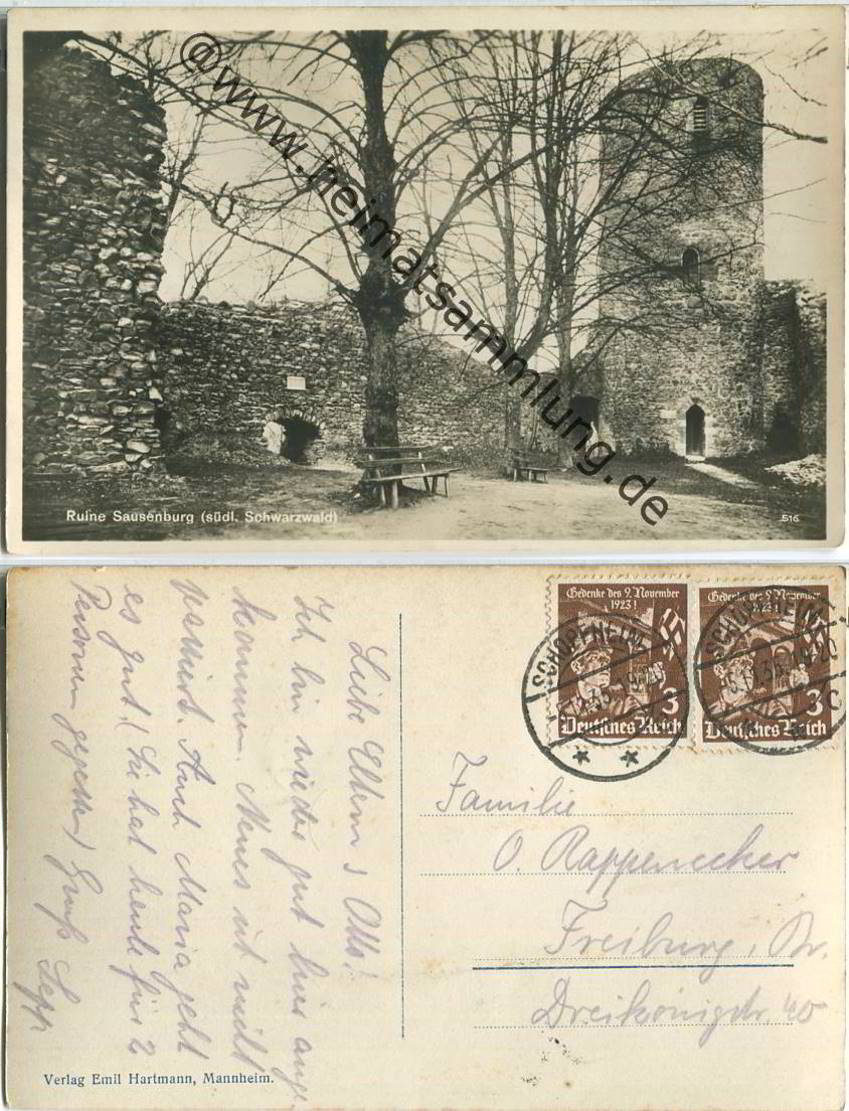 ©www.heimatsammlung.de
Ruine Sausenburg (südl. Schwarzwald)
516
Gedenke des 9. November
1923!
3
Deutsches Reich
Gedenke des 9. November
1923!
3
Deutsches Reich
SCHOPFHEIM
SCHOPFHEIM
Liebe Eltern u Otto!
Ich bin wieder gut hier ange
kommen. Neues ist nicht
passiert. Auch Maria geht
es gut. (Sie hat heute für 2
Personen gegessen) Gruß Sepp
Familie
O. Rappenecker
Freiburg i. Br.
Dreikönigstr. 40
Verlag Emil Hartmann, Mannheim.